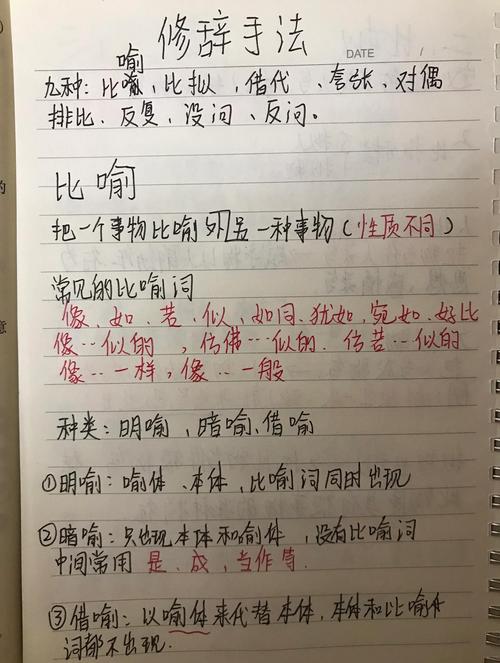 修辞手法
DATE /
喻
九种：比喻，比拟，借代、夸张、对偶
排比、反复、没问、反问。
比喻
把一个事物比喻外另一种事物（性质不同）
常见的比喻词
像、如、若、似、如同、犹如，宛如、好比
像…似的，仿佛…似的、仿若…似的
像…一样，像…一般
种类：明喻、暗喻、借喻
①明喻：喻体、本体，比喻词同时出现
②暗喻：只出现本体和喻体，没有比喻词
中间常用是、成，当作等.
③借喻：以喻体来代替本体，本体和比喻体
词都不出现.
的
意